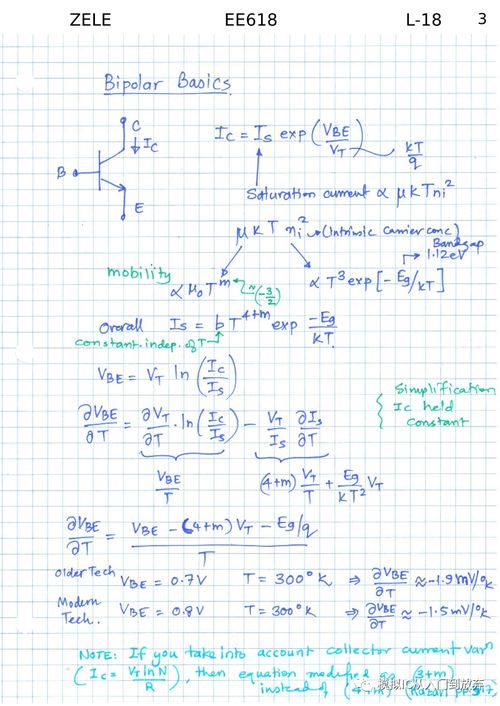 ZELE EE618 L-18 3
Bipolar Basics
C
I_C
B
E
I_C = I_S exp(V_BE/V_T)
kT/q
Saturation current ∝ μkTn_i²
μkT n_i² → (Intrinsic carrier conc)
Bandgap
1.12eV
mobility
∝ μ₀T^m ≈(-3/2)
∝ T³ exp[-Eg/kT]
Overall I_S = bT^(4+m) exp -Eg/kT
constant. indep. of T
V_BE = V_T ln(I_C/I_S)
Simplification
I_C held
constant
∂V_BE/∂T = ∂V_T/∂T · ln(I_C/I_S) - V_T/I_S ∂I_S/∂T
V_BE/T
(4+m) V_T/T + Eg/kT² V_T
∂V_BE/∂T = V_BE - (4+m)V_T - Eg/q / T
Older Tech V_BE = 0.7V T = 300°K ⇒ ∂V_BE/∂T ≈ -1.9mV/°K
Modern Tech. V_BE = 0.8V T = 300°K ⇒ ∂V_BE/∂T ≈ -1.5mV/°K
NOTE: If you take into account collector current varn
(I_C = V_T lnN/R), then equation modified as (3+m)
instead of (4+m) (Razavi
模拟IC从入门到放弃